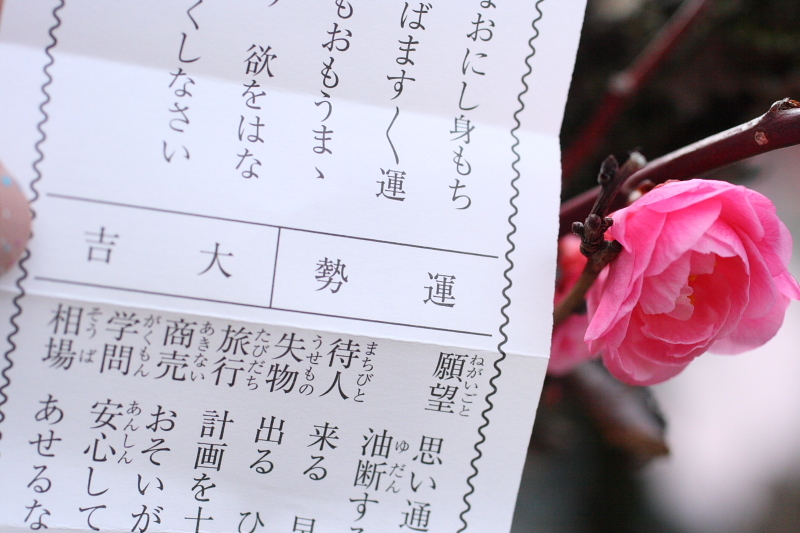 なおにし身もち
ばます〱運
もおもうまゝ
欲をはな
くしなさい
運勢
大吉
願望 思い通
ねがいごと
油断する
ゆだん
待人 来る
まちびと
失物 出る ひ
うせもの
旅行 計画を十
たびだち
商売 おそいが
あきない
学問 安心して
がくもん あんしん
相場 あせるな
そうば